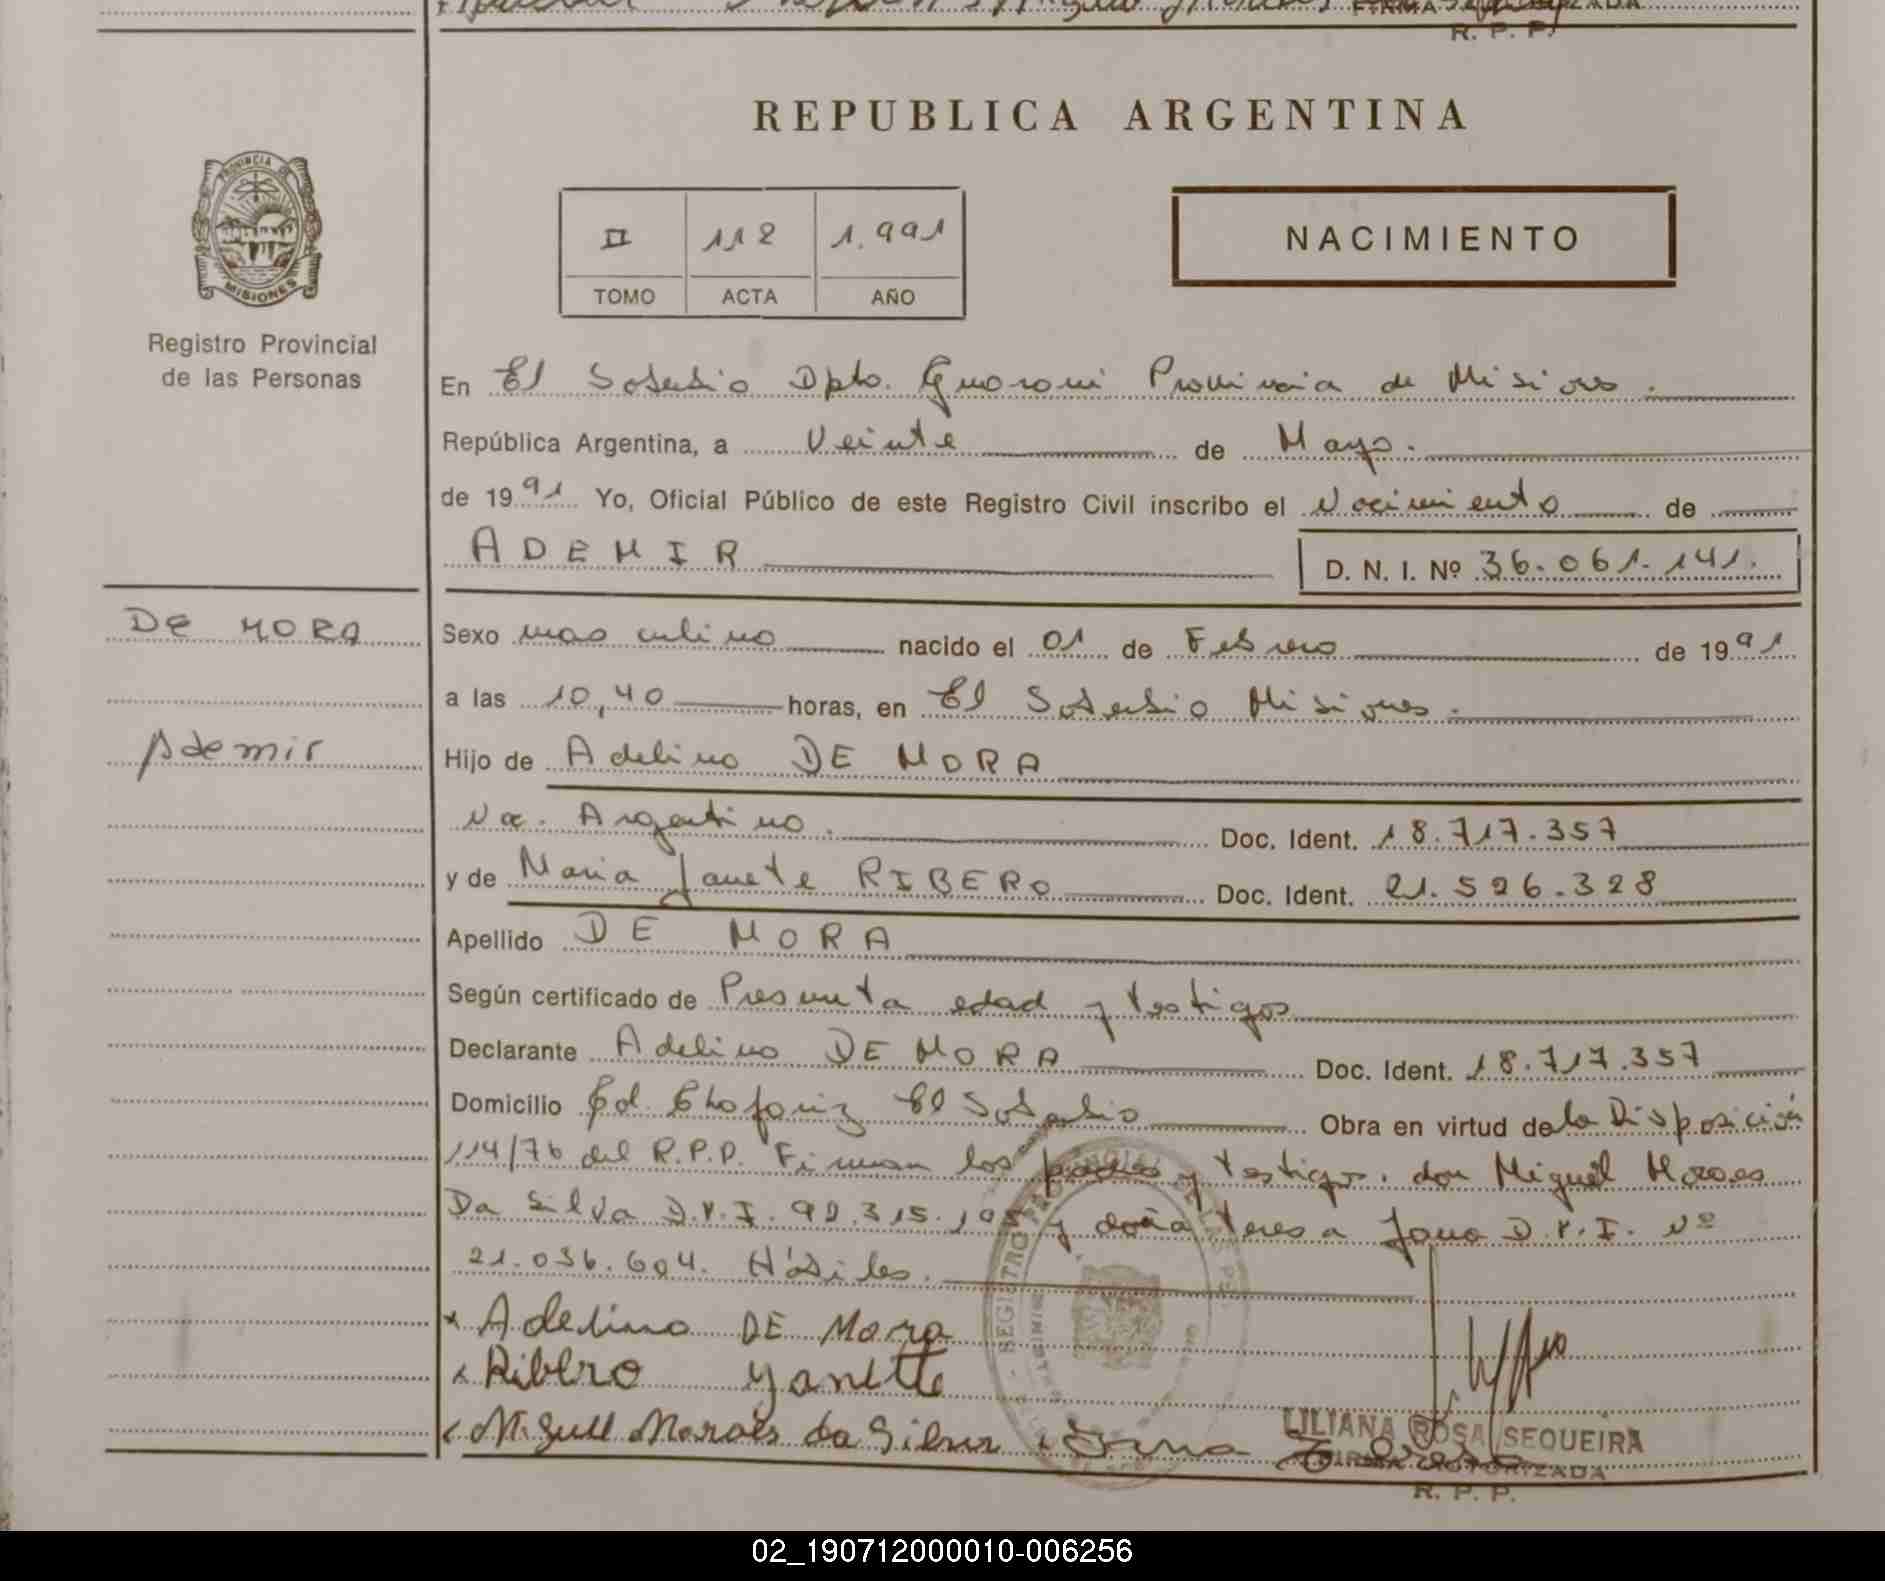 FIRMA AUTORIZADA
R. P. P.
REPUBLICA ARGENTINA
PROVINCIA DE
MISIONES
Registro Provincial
de las Personas
II 112 1.991
TOMO ACTA AÑO
NACIMIENTO
En El Soberbio Dpto. Guarani Provincia de Misiones.
República Argentina, a Veinte de Mayo.
de 1991 Yo, Oficial Público de este Registro Civil inscribo el Nacimiento de
ADEMIR D. N. I. Nº 36.061.141.
DE MORA
Ademir
Sexo masculino nacido el 01 de Febrero de 1991
a las 10,40 horas, en El Soberbio Misiones.
Hijo de Adelino DE MORA
Na. Argentino. Doc. Ident. 18.717.357
y de Maria Janete RIBERO Doc. Ident. 21.526.328
Apellido DE MORA
Según certificado de Presunta edad y testigos
Declarante Adelino DE MORA Doc. Ident. 18.717.357
Domicilio Col. Chafariz El Soberbio Obra en virtud de la Disposición
114/76 del R.P.P. Firman los padres y testigos. don Miguel Moraes
Da Silva D.N.I. 92.315. y doña teresa Jana D.N.I. Nº
21.036.604. Hábiles.
x Adelino DE Mora
x Ribero Yanette
x Miguel Moraes da Silva
LILIANA ROSA SEQUEIRA
FIRMA AUTORIZADA
R. P. P.
02_190712000010-006256